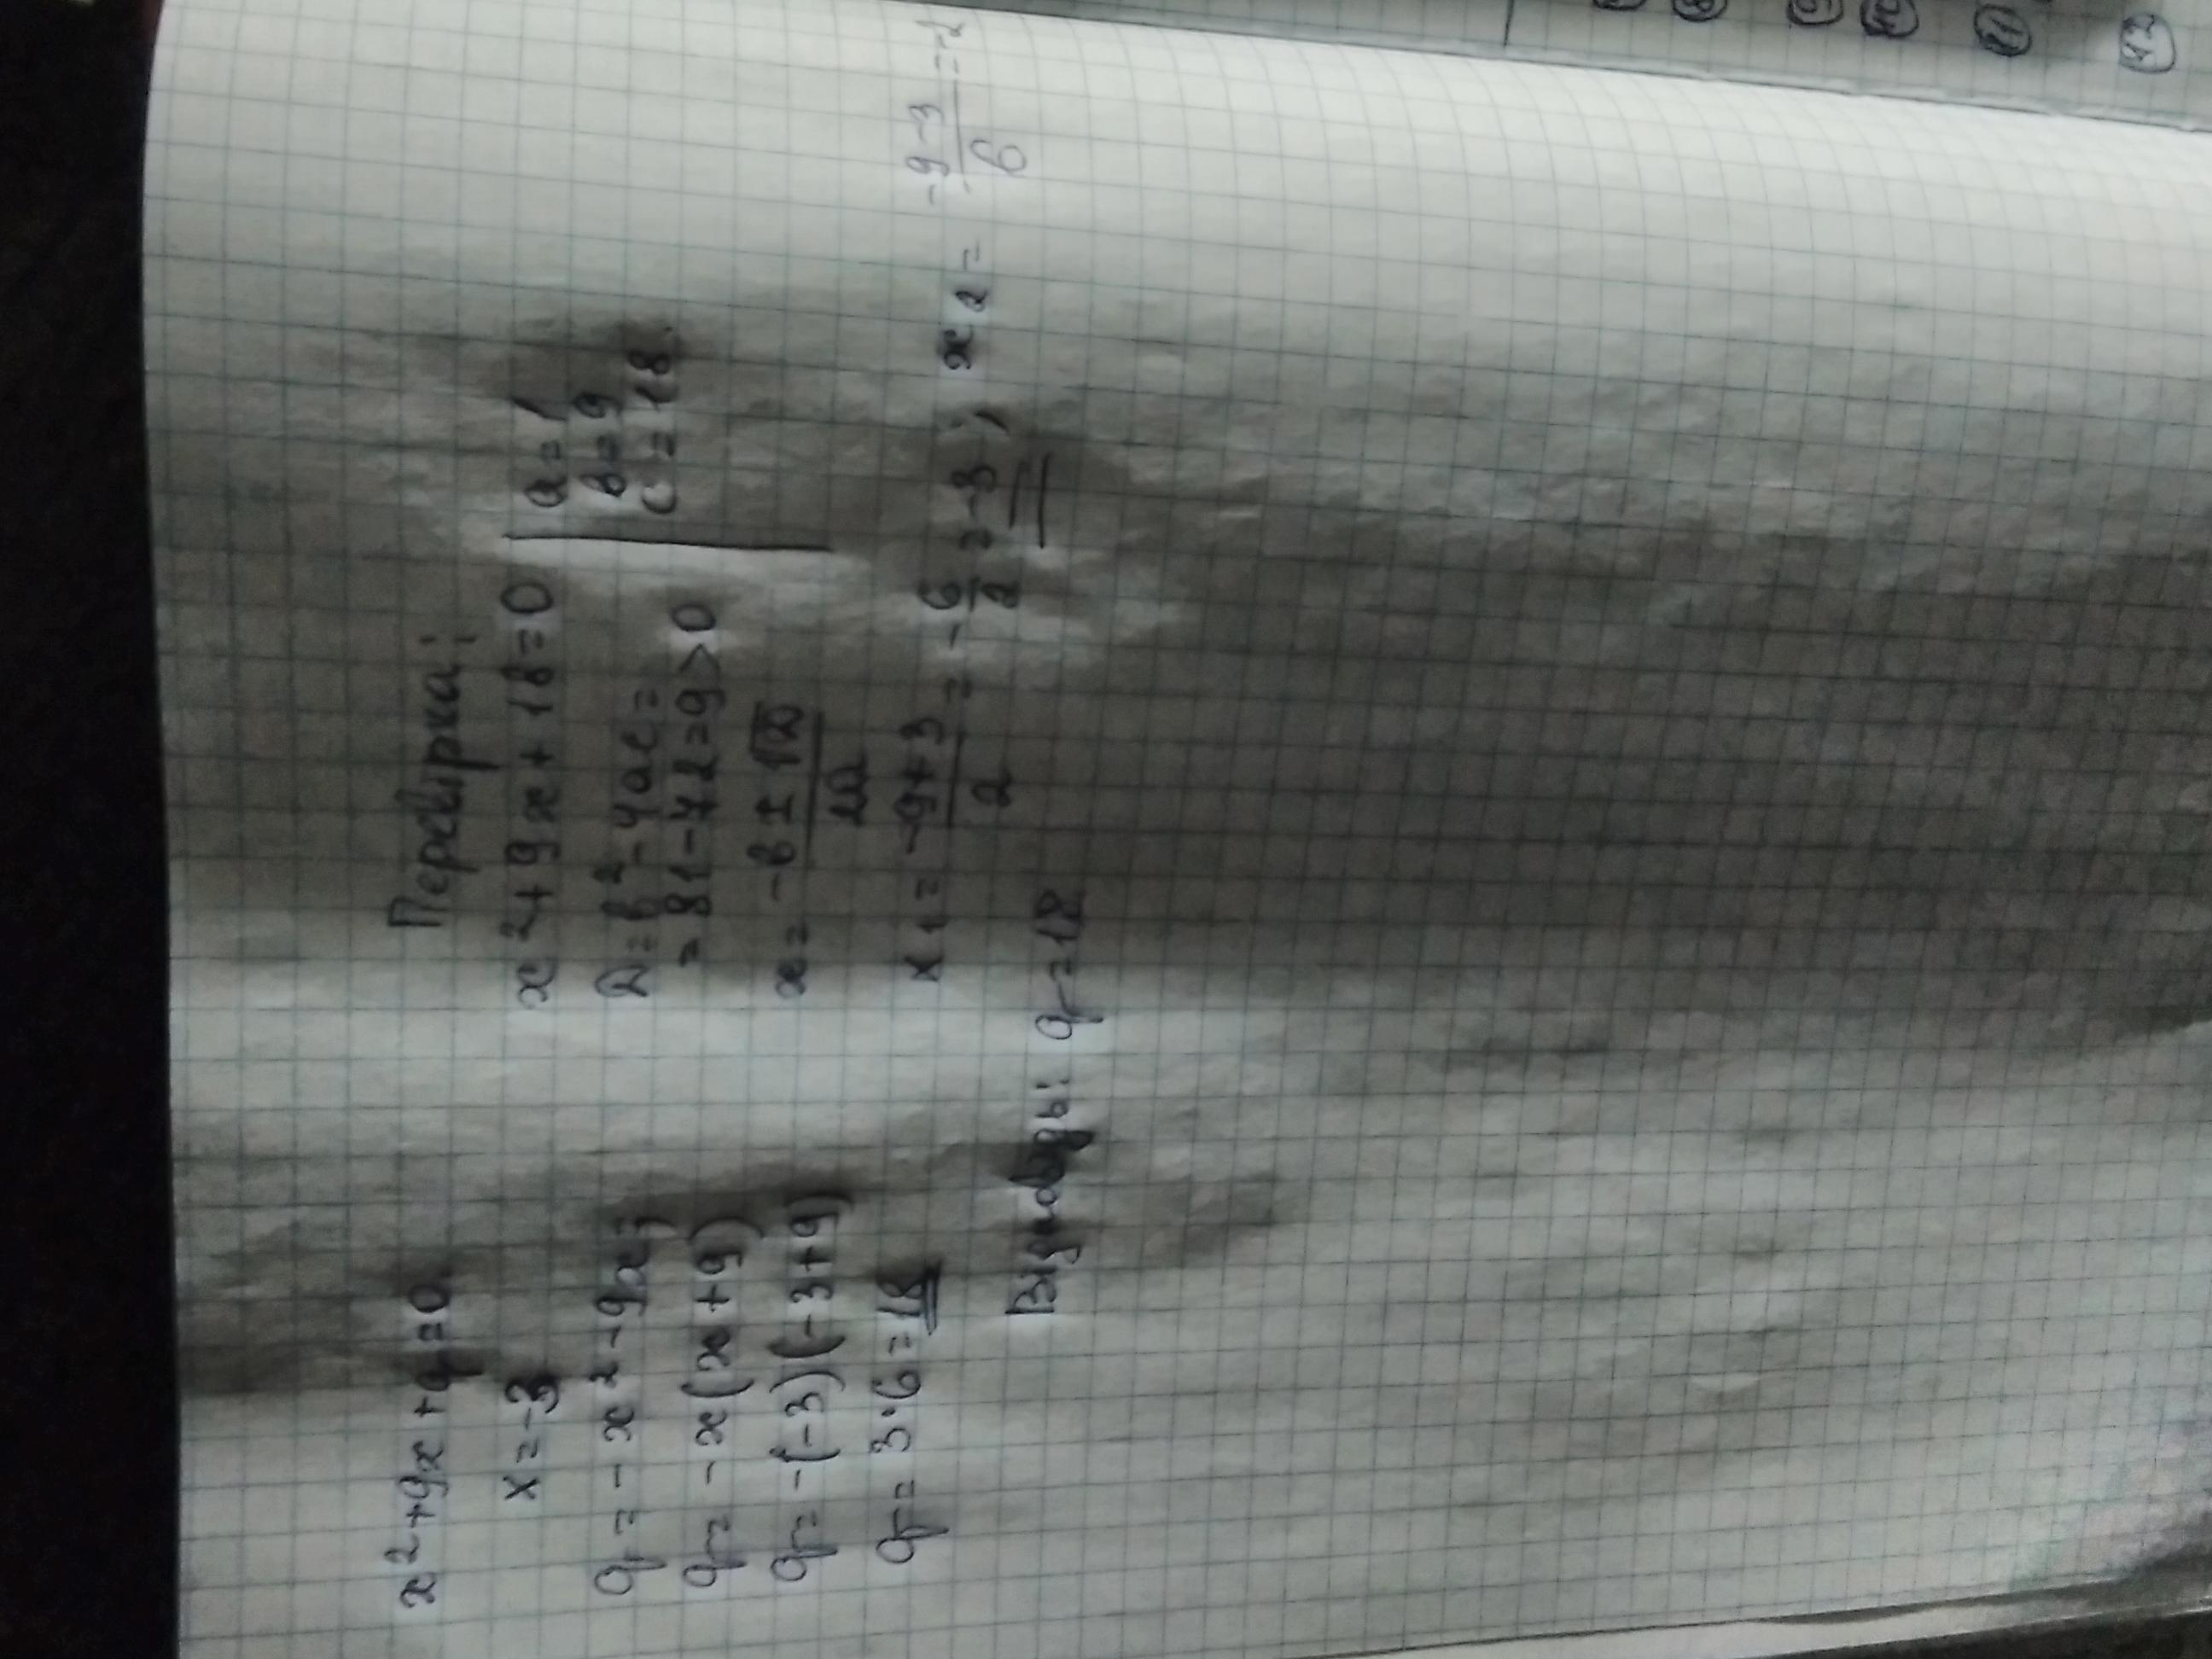 x²+9x+q=0.
x=-3
q=-x²-9x;
q=-x(x+9)
q=-(-3)(-3+9)
q=3·6=18
Перевірка:
x²+9x+18=0
a=1
b=9
c=18.
D=b²-4ac=
=81-72=9>0
x=\frac{-b±√D}{2a}
x1=\frac{-9+3}{2}=-\frac{6}{2}=-3;
x2=\frac{-9-3}{6}=-2
q=18
12